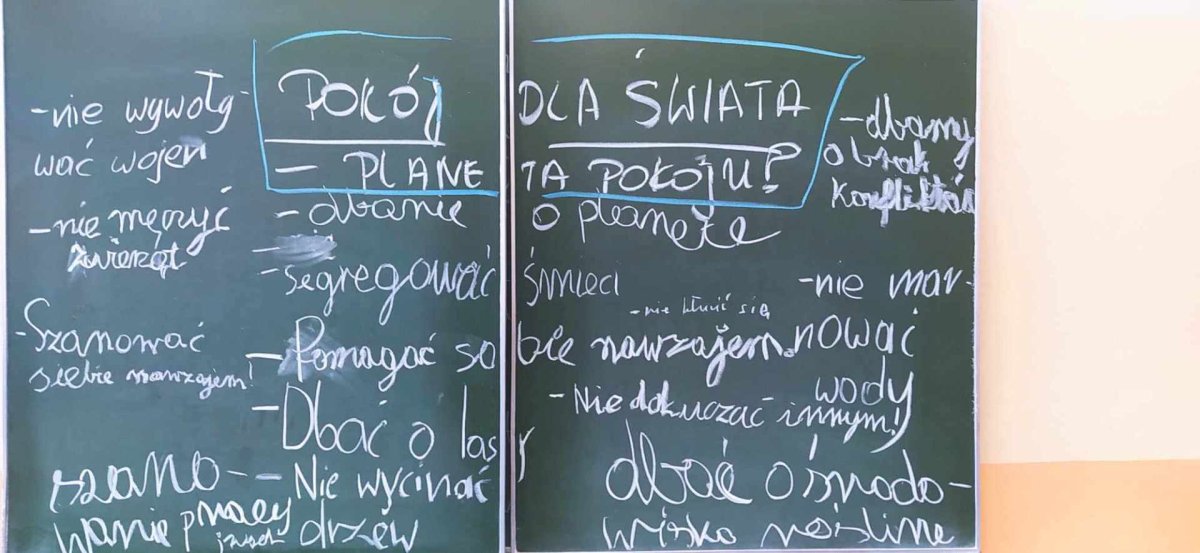 POKÓJ DLA ŚWIATA
- PLANETA POKOJU?
- nie wywoły-
wać wojen
- nie męczyć
zwierząt
- Szanować
siebie nawzajem!
szano-
wanie pracy
- dbanie o planetę
- segregować śmieci
- Pomagać sobie nawzajem.
- Dbać o lasy
- Nie wycinać
drzew
- nie kłucić się
- Nie dokuczać innym!
- dbamy
o brak
konfliktów
- nie mar-
nować
wody
dbać o środo-
wisko roślinne